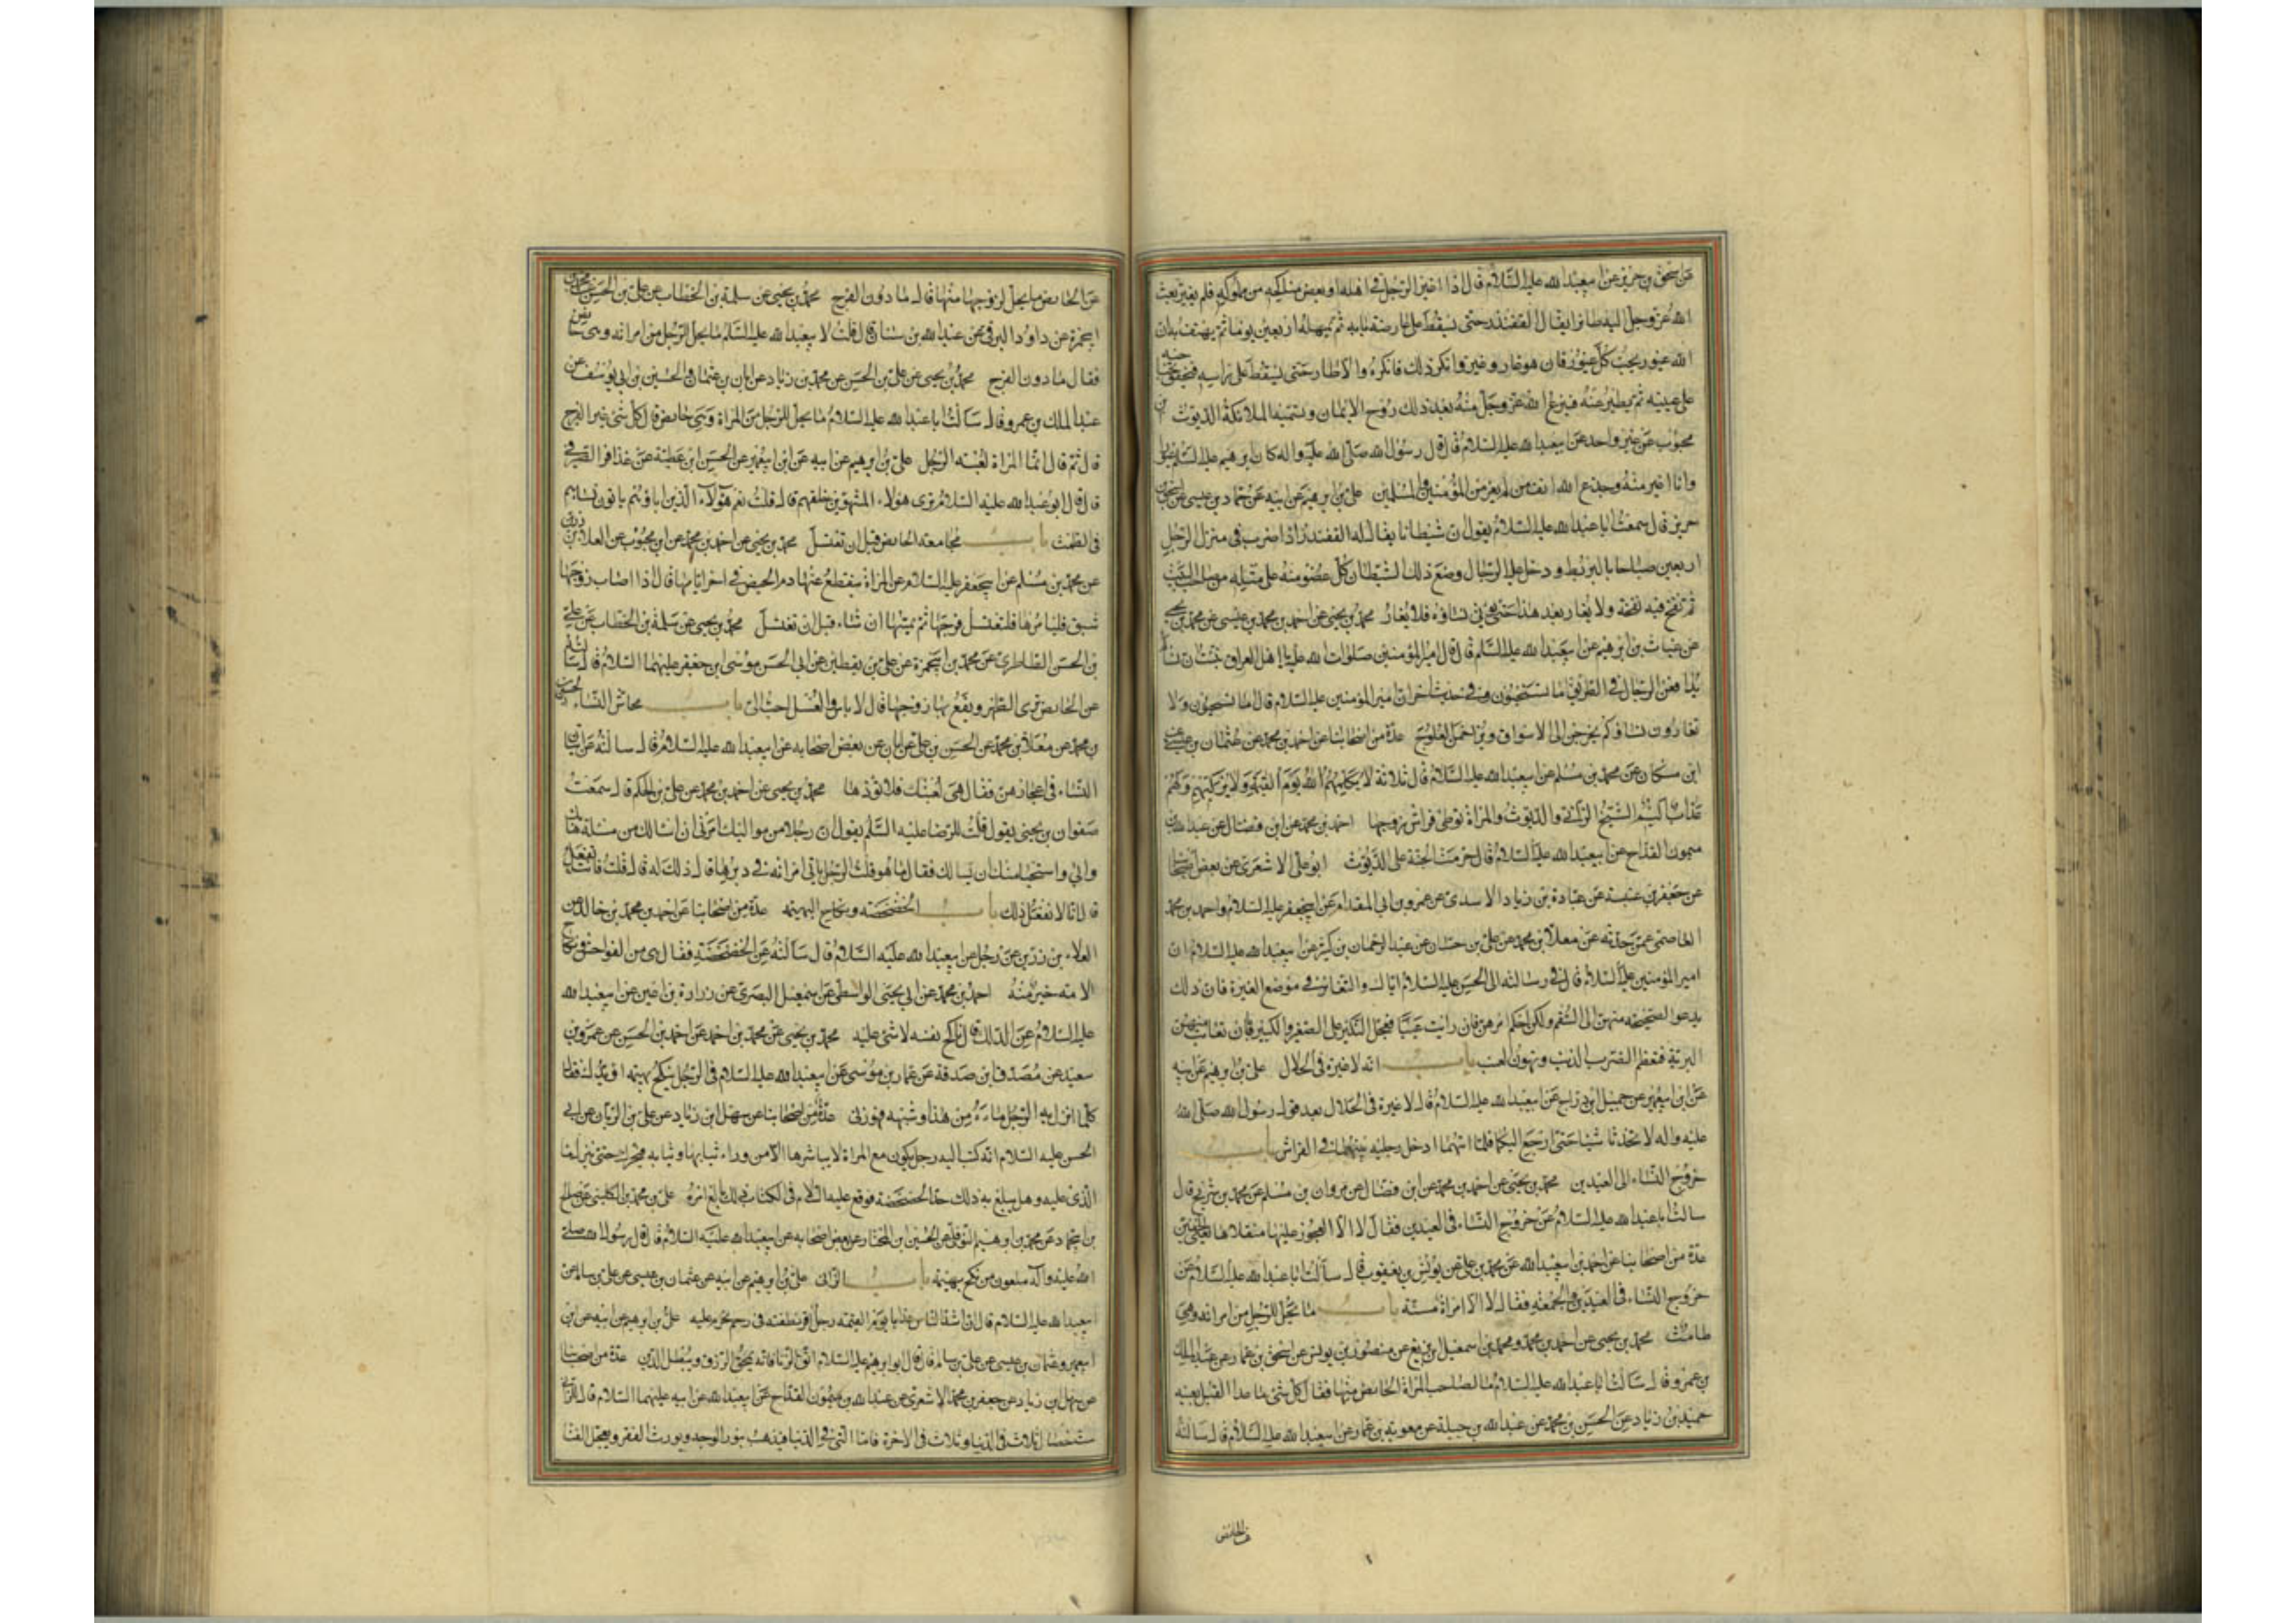 عن اسحق بن جرير عن ابيعبد الله عليه السلام قال اذا اغير الرجل في اهله او بعض مناكحه من مملوكه فلم يغير بعث
الله عز وجل اليه طائرا يقال له القفندر حتى يسقط على عارضة بابه ثم يمهله اربعين يوما ثم يهتف به ان
الله غيور يحب كل غيور فان هو غار وغير وانكر ذلك فانكره والا طار حتى يسقط على راسه فيخفق بجناحيه
على عينيه ثم يطير عنه فينزع الله عز وجل منه بعد ذلك روح الايمان وتسميه الملائكة الديوث ابن
محبوب عن غير واحد عن ابيعبد الله عليه السلام قال قال رسول الله صلى الله عليه واله كان ابرهيم عليه السلم غيورا
وانا اغير منه وجدع الله انف من لم يغر من المؤمنين والمسلمين علي بن ابرهيم عن ابيه عن حماد بن عيسى عن اسحق بن
جرير قال سمعت ابا عبد الله عليه السلام يقول ان شيطانا يقال له القفندر اذا ضرب في منزل الرجل
اربعين صباحا بالبربط ودخل عليه الرجال وضع ذلك الشيطان كل عضو منه على مثله من صاحب البيت
ثم نفخ فيه نفخة ولا يغار بعد هذا حتى تؤتى نساؤه فلا يغار محمد بن يحيى عن احمد بن محمد بن عيسى عن محمد بن يحيى
عن غياث بن ابرهيم عن ابيعبد الله عليه السلم قال قال امير المؤمنين صلوات الله عليه يا اهل العراق نبئت ان نساءكم
يدافعن الرجال في الطريق اما تستحيون وفي حديث اخر ان امير المؤمنين عليه السلام قال اما تستحيون ولا
تغارون نساؤكم يخرجن الى الاسواق ويزاحمن العلوج عدة من اصحابنا عن احمد بن محمد عن عثمان بن عيسى عن
ابن مسكان عن محمد بن مسلم عن ابيعبد الله عليه السلام قال ثلاثة لا يكلمهم الله يوم القيمة ولا يزكيهم ولهم
عذاب اليم الشيخ الزاني والديوث والمراة توطئ فراش زوجها احمد بن محمد عن ابن فضال عن عبد الله بن
ميمون القداح عن ابيعبد الله عليه السلام قال حرمت الجنة على الديوث ابو علي الاشعري عن بعض اصحابنا
عن جعفر بن عنبسة عن عبادة بن زياد الاسدي عن عمرو بن ابي المقدام عن ابيجعفر عليه السلام واحمد بن محمد
العاصمي عمن حدثه عن معلا بن محمد عن علي بن حسان عن عبد الرحمان بن كثير عن ابيعبد الله عليه السلام ان
امير المؤمنين عليه السلام قال في رسالته الى الحسن عليه السلام اياك والتغاير في موضع الغيرة فان ذلك
يدعو الصحيحة منهن الى السقم ولكن احكم امرهن فان رايت عيبا فعجل النكير على الصغير والكبير فان تعاتب منهن
البرية فتعظم الضرب الذنب وتهون العتب باب انه لا غيرة في الحلال علي بن ابرهيم عن ابيه
عن ابن ابيعمير عن جميل ابن دراج عن ابيعبد الله عليه السلام قال لا غيرة في الحلال بعد قول رسول الله صلى الله
عليه واله لا تحدثا شيئا حتى ارجع اليكما فلما اتاهما ادخل رجليه بينهما في الفراش باب
خروج النساء الى العيدين محمد بن يحيى عن احمد بن محمد عن ابن فضال عن مروان بن مسلم عن محمد بن شريح قال
سالت ابا عبد الله عليه السلام عن خروج النساء في العيدين فقال لا الا العجوز عليها منقلاها يعني الخفين
عدة من اصحابنا عن احمد بن ابيعبد الله عن محمد بن علي عن يونس بن يعقوب قال سألت ابا عبد الله عليه السلام عن
خروج النساء في العيدين والجمعة فقال لا الا امراة مسنة باب ما يحل للرجل من امراته وهي
طامث محمد بن يحيى عن احمد بن محمد ومحمد بن اسمعيل بن بزيع عن منصور بن يونس عن اسحق بن عمار عن عبد الملك
بن عمرو قال سألت ابا عبد الله عليه السلام ما لصاحب المراة الحائض منها فقال كل شئ ما عدا القبل بعينه
حميد بن زياد عن الحسن بن محمد عن عبد الله بن جبلة عن معوية بن عمار عن ابيعبد الله عليه السلام قال سالته
عن الحائض
عن الحائض ما يحل لزوجها منها قال ما دون الفرج محمد بن يحيى عن سلمة بن الخطاب عن علي بن الحسن عن محمد بن
ابيحمزة عن داود الرقي عن عبد الله بن سنان قال قلت لابيعبد الله عليه السلم ما يحل للرجل من امراته وهي حائض
فقال ما دون الفرج محمد بن يحيى عن علي بن الحسن عن محمد بن زياد عن ابان بن عثمان والحسين بن ابي يوسف عن
عبد الملك بن عمرو قال سألت ابا عبد الله عليه السلام ما يحل للرجل من المراة وهي حائض قال كل شئ غير الفرج
قال ثم قال انما المراة لعبة الرجل علي بن ابرهيم عن ابيه عن ابن ابيعمير عن الحسن ابن عطية عن عذافر الصيرفي
قال قال ابو عبد الله عليه السلام ترى هولاء المشوهين خلقهم قال قلت نعم هؤلاء الذين اباؤهم ياتون نساءهم
في الطمث باب مجامعة الحائض قبل ان تغتسل محمد بن يحيى عن احمد بن محمد عن ابن محبوب عن العلا بن رزين
عن محمد بن مسلم عن ابيجعفر عليه السلام عن المراة ينقطع عنها دم الحيض في اخر ايامها قال اذا اصاب زوجها
شبق فليامرها فلتغسل فرجها ثم يمسها ان شاء قبل ان تغتسل محمد بن يحيى عن سلمة بن الخطاب عن علي
بن الحسن الطاطري عن محمد بن ابيحمزة عن علي بن يقطين عن ابي الحسن موسى ابن جعفر عليهما السلام قال سالته
عن الحائض ترى الطهر ويقع بها زوجها قال لا باس والغسل احب الي باب محاش النساء الحسين
بن محمد عن معلا بن محمد عن الحسن بن علي عن ابان عن بعض اصحابه عن ابيعبد الله عليه السلام قال سالته عن اتيان
النساء في اعجازهن فقال هي لعبتك فلا تؤذها محمد بن يحيى عن احمد بن محمد عن علي بن الحكم قال سمعت
صفوان بن يحيى يقول قلت للرضا عليه السلم يقول ان رجلا من مواليك امرني ان اسالك عن مسئلة هابك
واستحيا منك ان يسالك فقال ما هو قلت الرجل ياتي امراته في دبرها قال ذلك له قال قلت فانت تفعل
قال انا لا نفعل ذلك باب الخضخضة ونكاح البهيمة عدة من اصحابنا عن احمد بن محمد بن خالد عن
العلاء بن رزين عن رجل عن ابيعبد الله عليه السلام قال سألته عن الخضخضة فقال هي من الفواحش ونكاح
الامة خير منه احمد بن محمد عن ابي يحيى الواسطي عن اسمعيل البصري عن زرارة بن اعين عن ابيعبد الله
عليه السلام عن الدلك قال ناكح نفسه لا شئ عليه محمد بن يحيى عن محمد بن احمد عن احمد بن الحسن عن عمرو بن
سعيد عن مصدق ابن صدقة عن عمار بن موسى عن ابيعبد الله عليه السلام في الرجل ينكح بهيمة او يدلك فقال
كلما انزل به الرجل ماءه من هذا وشبهه فهو زنى عدة من اصحابنا عن سهل ابن زياد عن علي بن الريان عن ابي
الحسن عليه السلام انه كتب اليه رجل يكون مع المراة لا يباشرها الا من وراء ثيابها وثيابه فيتحرك حتى ينزل ما
الذي عليه وهل يبلغ به ذلك حد الخضخضة فوقع عليه السلام في الكتاب ذلك بالغ امره علي بن محمد بن الكليني عن صالح
بن ابيحماد عن محمد بن ابرهيم النوفلي عن الحسين ابن المختار عن بعض اصحابه عن ابيعبد الله عليه السلام قال قال رسول الله صلى
الله عليه واله ملعون من نكح بهيمة باب الزاني علي بن ابرهيم عن ابيه عن عثمان بن عيسى عن علي بن سالم عن
ابيعبد الله عليه السلام قال ان اشد الناس عذابا يوم القيمة رجل اقر نطفته في رحم يحرم عليه علي بن ابرهيم عن ابيه عن ابن
ابيعمير وعثمان بن عيسى عن علي بن سالم قال قال ابو ابرهيم عليه السلام اتق الزنا فانه يمحق الرزق ويبطل الدين عدة من اصحابنا
عن سهل ابن زياد عن جعفر بن محمد الاشعري عن عبد الله بن ميمون القداح عن ابيعبد الله عن ابيه عليهما السلام قال للزاني
ست خصال ثلاث في الدنيا وثلاث في الاخرة فاما التي في الدنيا فيذهب بنور الوجه ويورث الفقر ويعجل الفنا